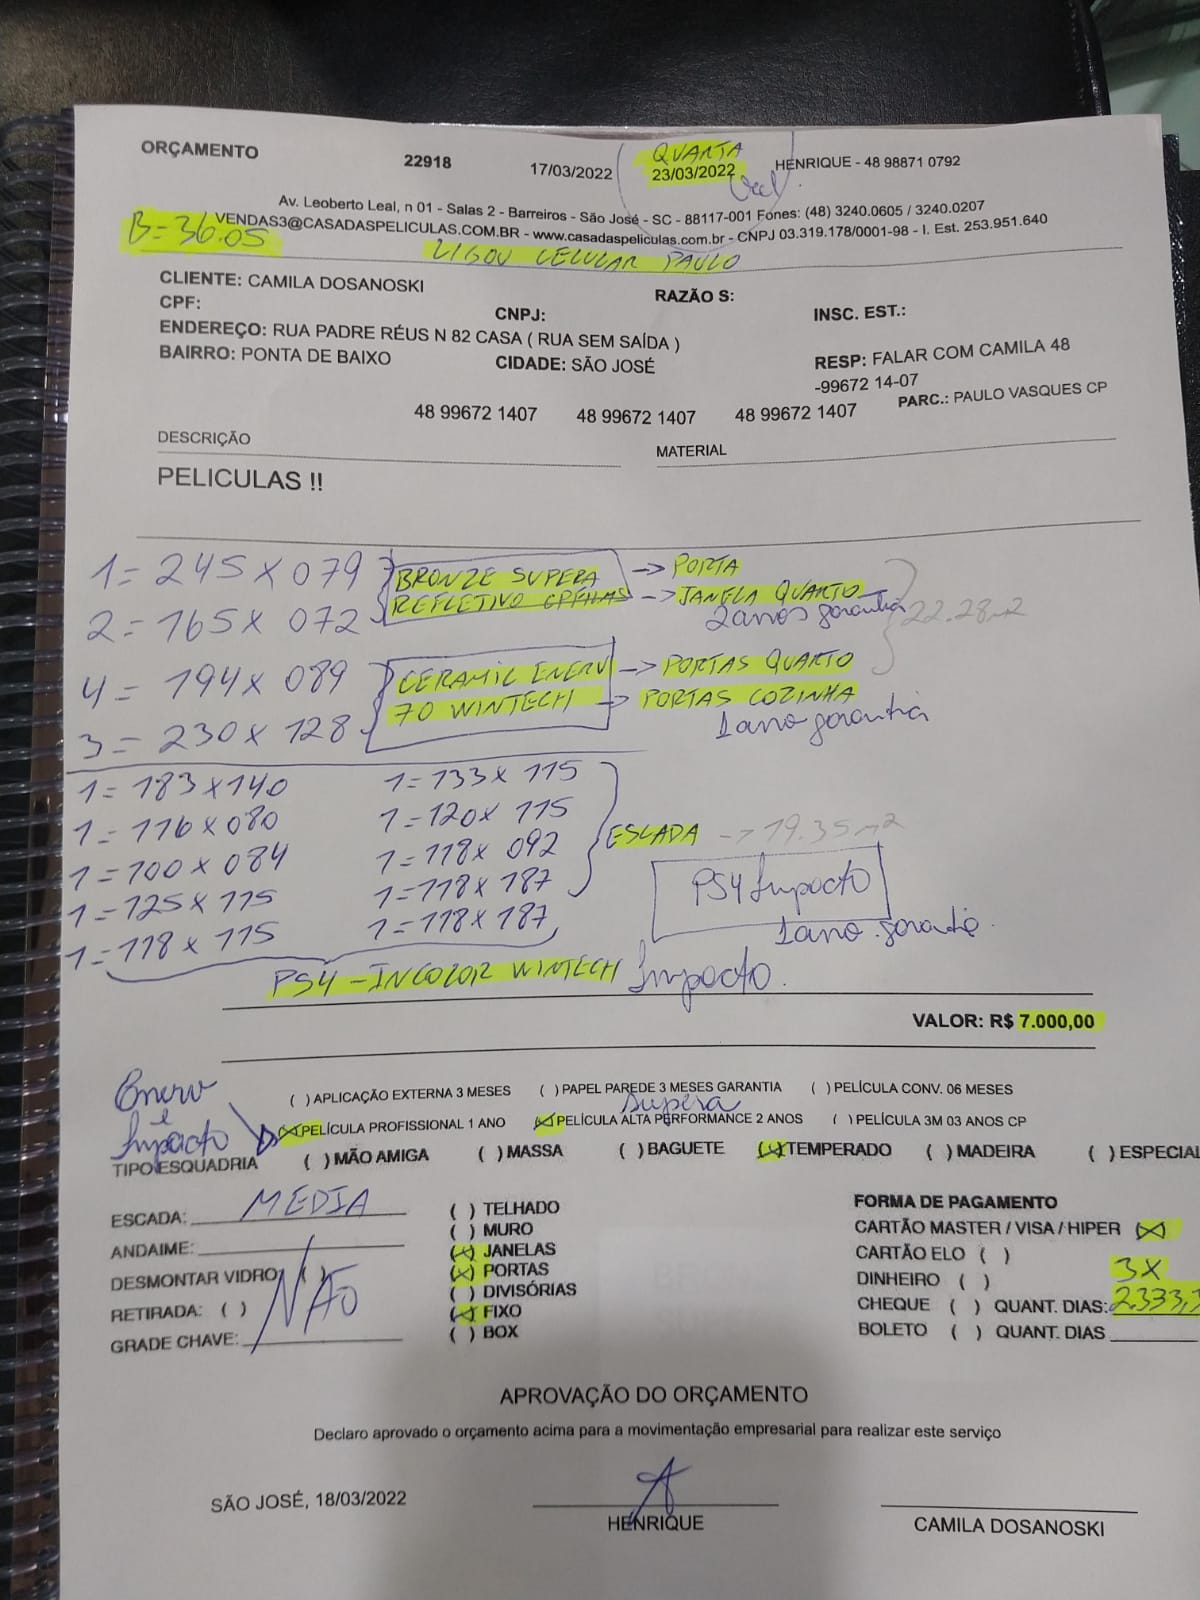 ORÇAMENTO 22918 17/03/2022 QUARTA 23/03/2022 HENRIQUE - 48 98871 0792
Av. Leoberto Leal, n 01 - Salas 2 - Barreiros - São José - SC - 88117-001 Fones: (48) 3240.0605 / 3240.0207
B=36.05 VENDAS3@CASADASPELICULAS.COM.BR - www.casadaspeliculas.com.br - CNPJ 03.319.178/0001-98 - I. Est. 253.951.640
LIGOU CELULAR PAULO
CLIENTE: CAMILA DOSANOSKI RAZÃO S:
CPF: CNPJ: INSC. EST.:
ENDEREÇO: RUA PADRE RÉUS N 82 CASA ( RUA SEM SAÍDA )
BAIRRO: PONTA DE BAIXO CIDADE: SÃO JOSÉ RESP: FALAR COM CAMILA 48
-99672 14-07
48 99672 1407 48 99672 1407 48 99672 1407 PARC.: PAULO VASQUES CP
DESCRIÇÃO MATERIAL
PELICULAS !!
1=245x079 BRONZE SUPERA -> PORTA
2=165x072 REFLETIVO -> JANELA QUARTO
2anos garantia 22.28m2
4=194x089 CERAMIC ENERV -> PORTAS QUARTO
3=230x128 70 WINTECH -> PORTAS COZINHA
1ano garantia
1=183x140 1=133x115
1=116x080 1=120x115
1=100x084 1=118x092 ESCADA -> 19.35m2
1=125x115 1=118x187 PS4 Impacto
1=118x115 1=118x187 1ano garantia.
PS4-INCOLOR WINTECH Impacto.
VALOR: R$ 7.000,00
Enerv e Impacto
( ) APLICAÇÃO EXTERNA 3 MESES ( ) PAPEL PAREDE 3 MESES GARANTIA ( ) PELÍCULA CONV. 06 MESES
Supera
(X) PELÍCULA PROFISSIONAL 1 ANO (X) PELÍCULA ALTA PERFORMANCE 2 ANOS ( ) PELÍCULA 3M 03 ANOS CP
TIPO ESQUADRIA ( ) MÃO AMIGA ( ) MASSA ( ) BAGUETE (X) TEMPERADO ( ) MADEIRA ( ) ESPECIAL
ESCADA: MEDIA ( ) TELHADO FORMA DE PAGAMENTO
( ) MURO CARTÃO MASTER / VISA / HIPER (X)
ANDAIME: (X) JANELAS CARTÃO ELO ( )
DESMONTAR VIDRO: ( ) (X) PORTAS DINHEIRO ( ) 3X
NÃO ( ) DIVISÓRIAS
RETIRADA: ( ) (X) FIXO CHEQUE ( ) QUANT. DIAS: 2.333,3
GRADE CHAVE: ( ) BOX BOLETO ( ) QUANT. DIAS
APROVAÇÃO DO ORÇAMENTO
Declaro aprovado o orçamento acima para a movimentação empresarial para realizar este serviço
SÃO JOSÉ, 18/03/2022
HENRIQUE CAMILA DOSANOSKI